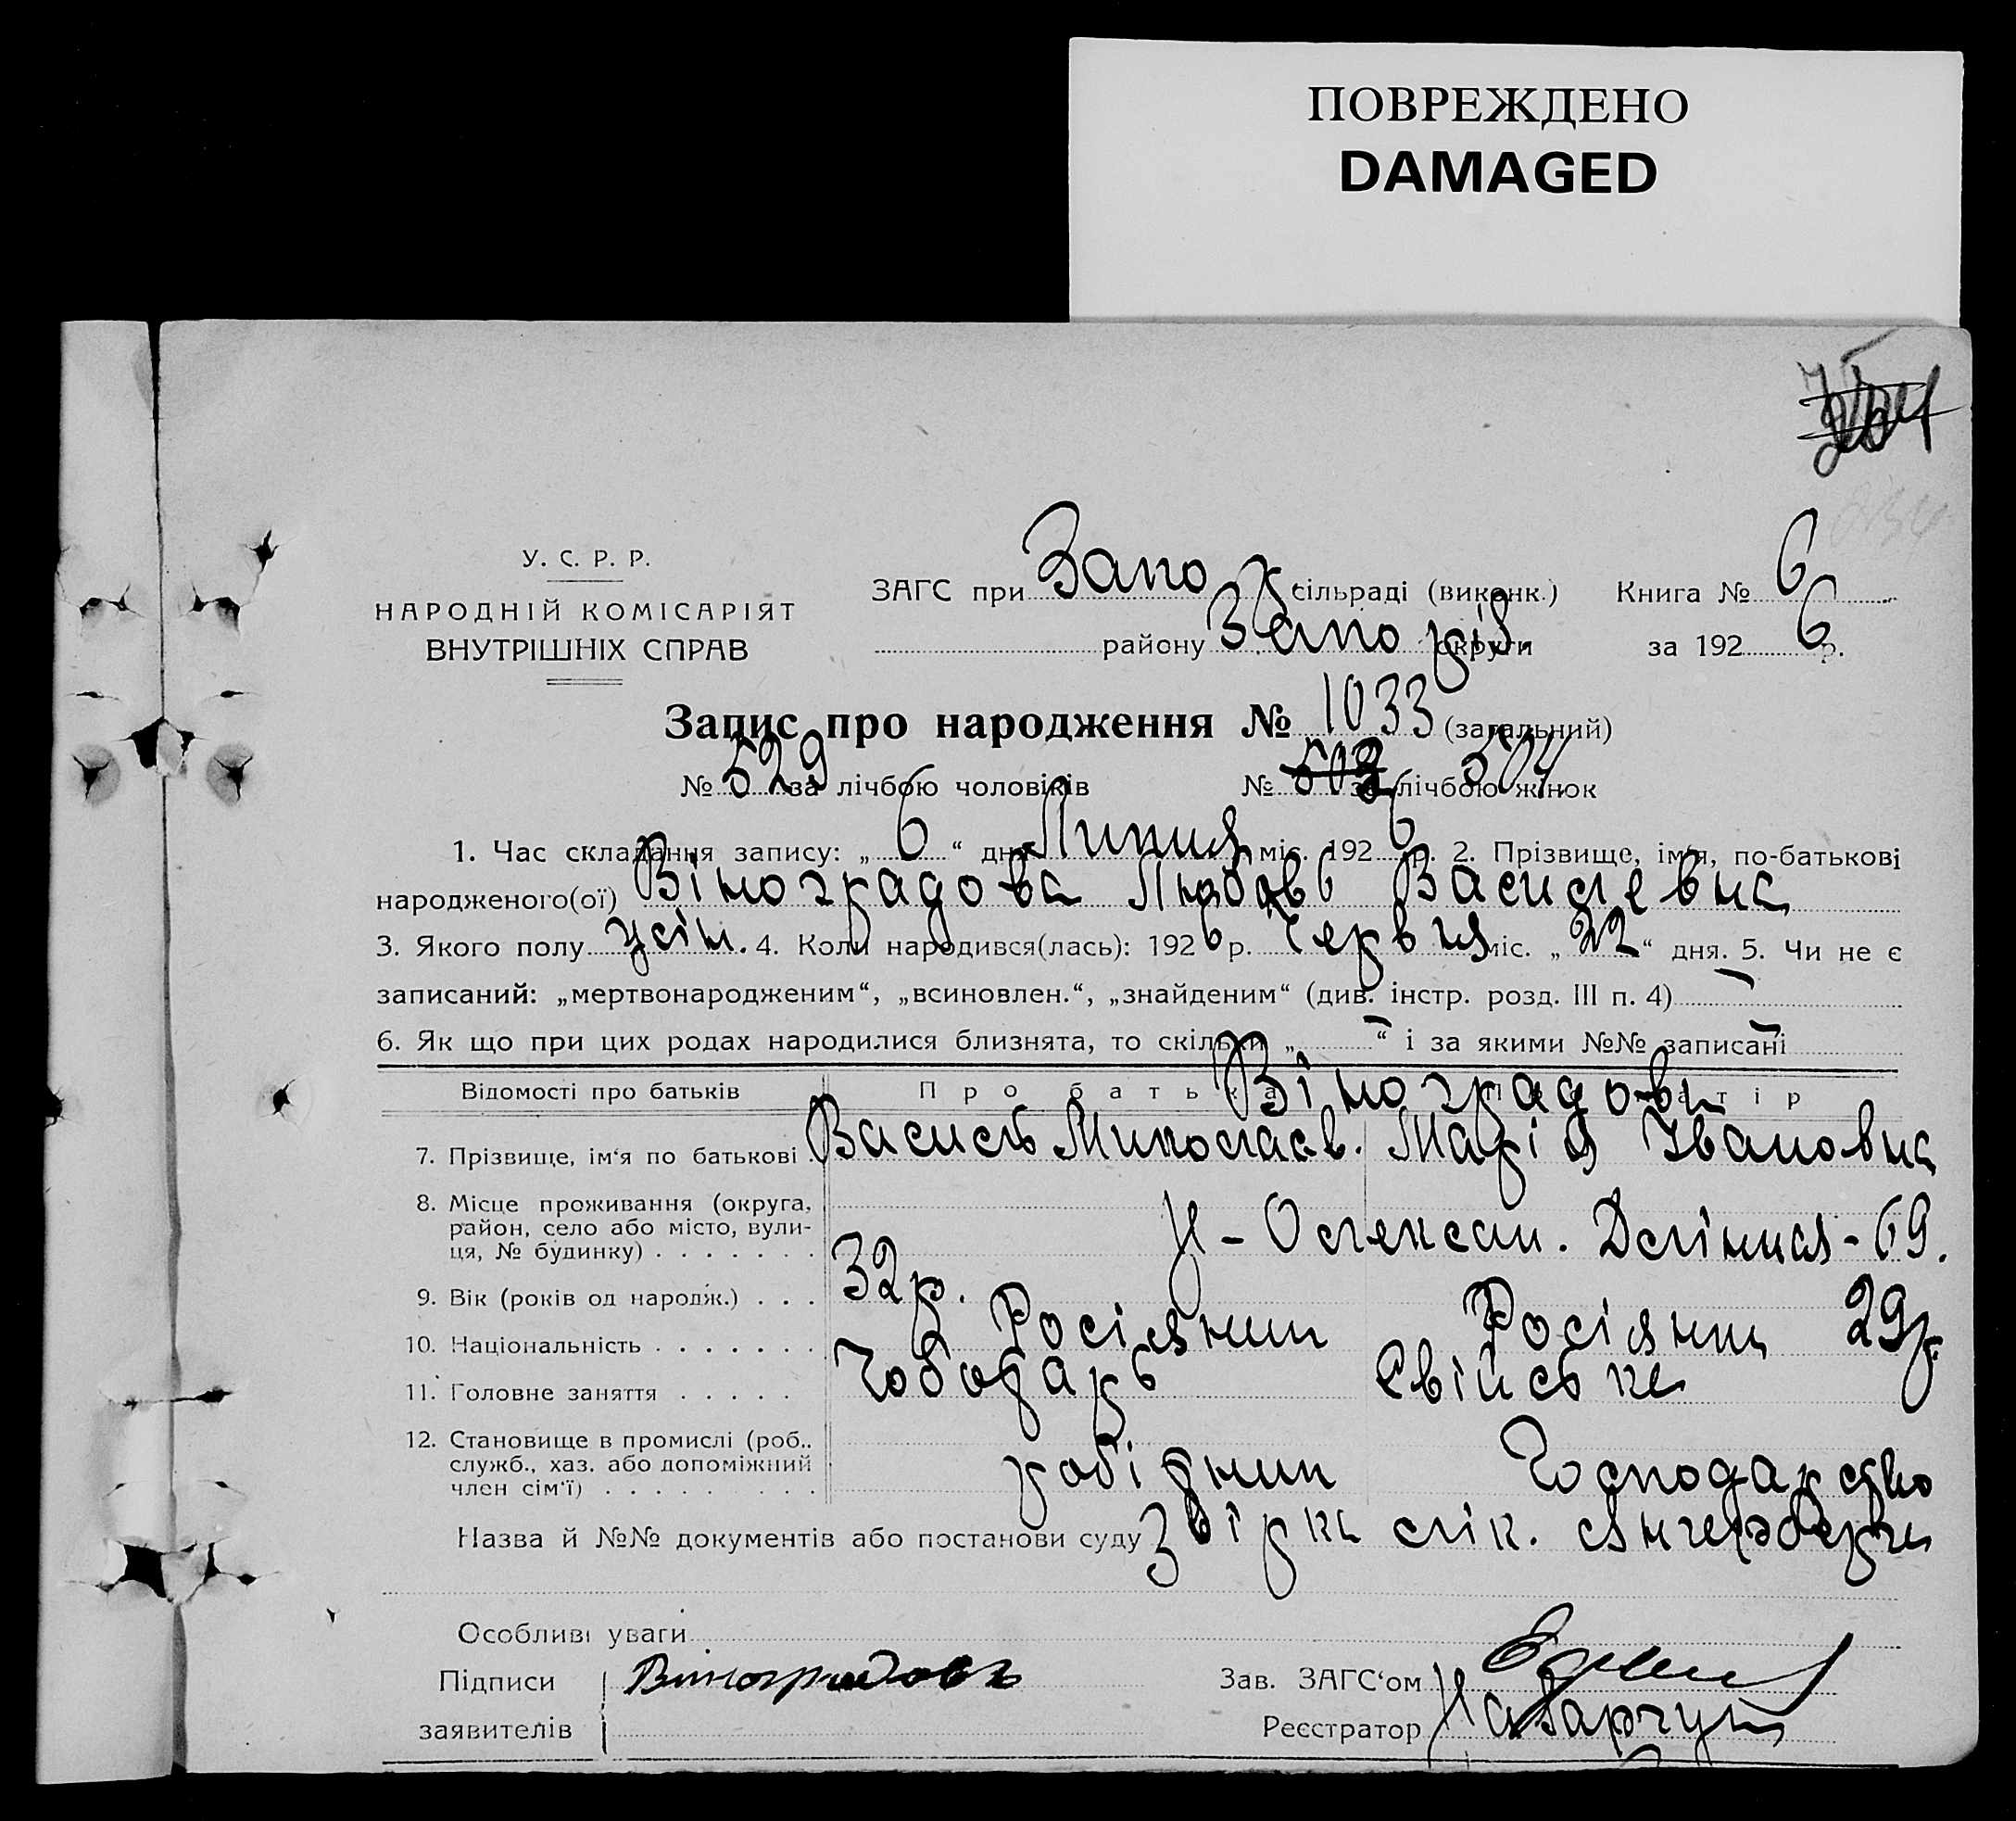 ПОВРЕЖДЕНО
DAMAGED
У. С. Р. Р.
НАРОДНІЙ КОМІСАРІЯТ
ВНУТРІШНІХ СПРАВ
ЗАГС при Запор сільраді (виконк.) Книга № 6
району Запоріз округи за 1926 р.
Запис про народження № 1033 (загальний)
№ 529 за лічбою чоловіків № 503 за лічбою жінок 504
1. Час складання запису: „ 6 “ дня Липня міс. 1926 р. 2. Прізвище, ім'я, по-батькові
народженого(ої) Віноградова Любовь Василевна
3. Якого полу жін. 4. Коли народився(лась): 1926 р. Червня міс. „ 22 “ дня. 5. Чи не є
записаний: „мертвонародженим“, „всиновлен.“, „знайденим“ (див. інстр. розд. III п. 4) —
6. Як що при цих родах народилися близнята, то скільки „ — “ і за якими №№ записані —
Відомості про батьків Про батька Про матір
Віноградови
7. Прізвище, ім'я по батькові Василь Миколаєв. Марія Івановна
8. Місце проживання (округа, район, село або місто, вулиця, № будинку) Н-Олексан. 69.
9. Вік (років од народж.) 32 р. 29 р.
10. Національність Росіянин Росіянка
11. Головне заняття Чоботарь Свійське
12. Становище в промислі (роб., служб., хаз. або допоміжний член сім'ї) робітник Господарство
Назва й №№ документів або постанови суду Звірка лік.
Особливі уваги
Підписи Виноградовъ Зав. ЗАГС'ом
заявителів Реєстратор